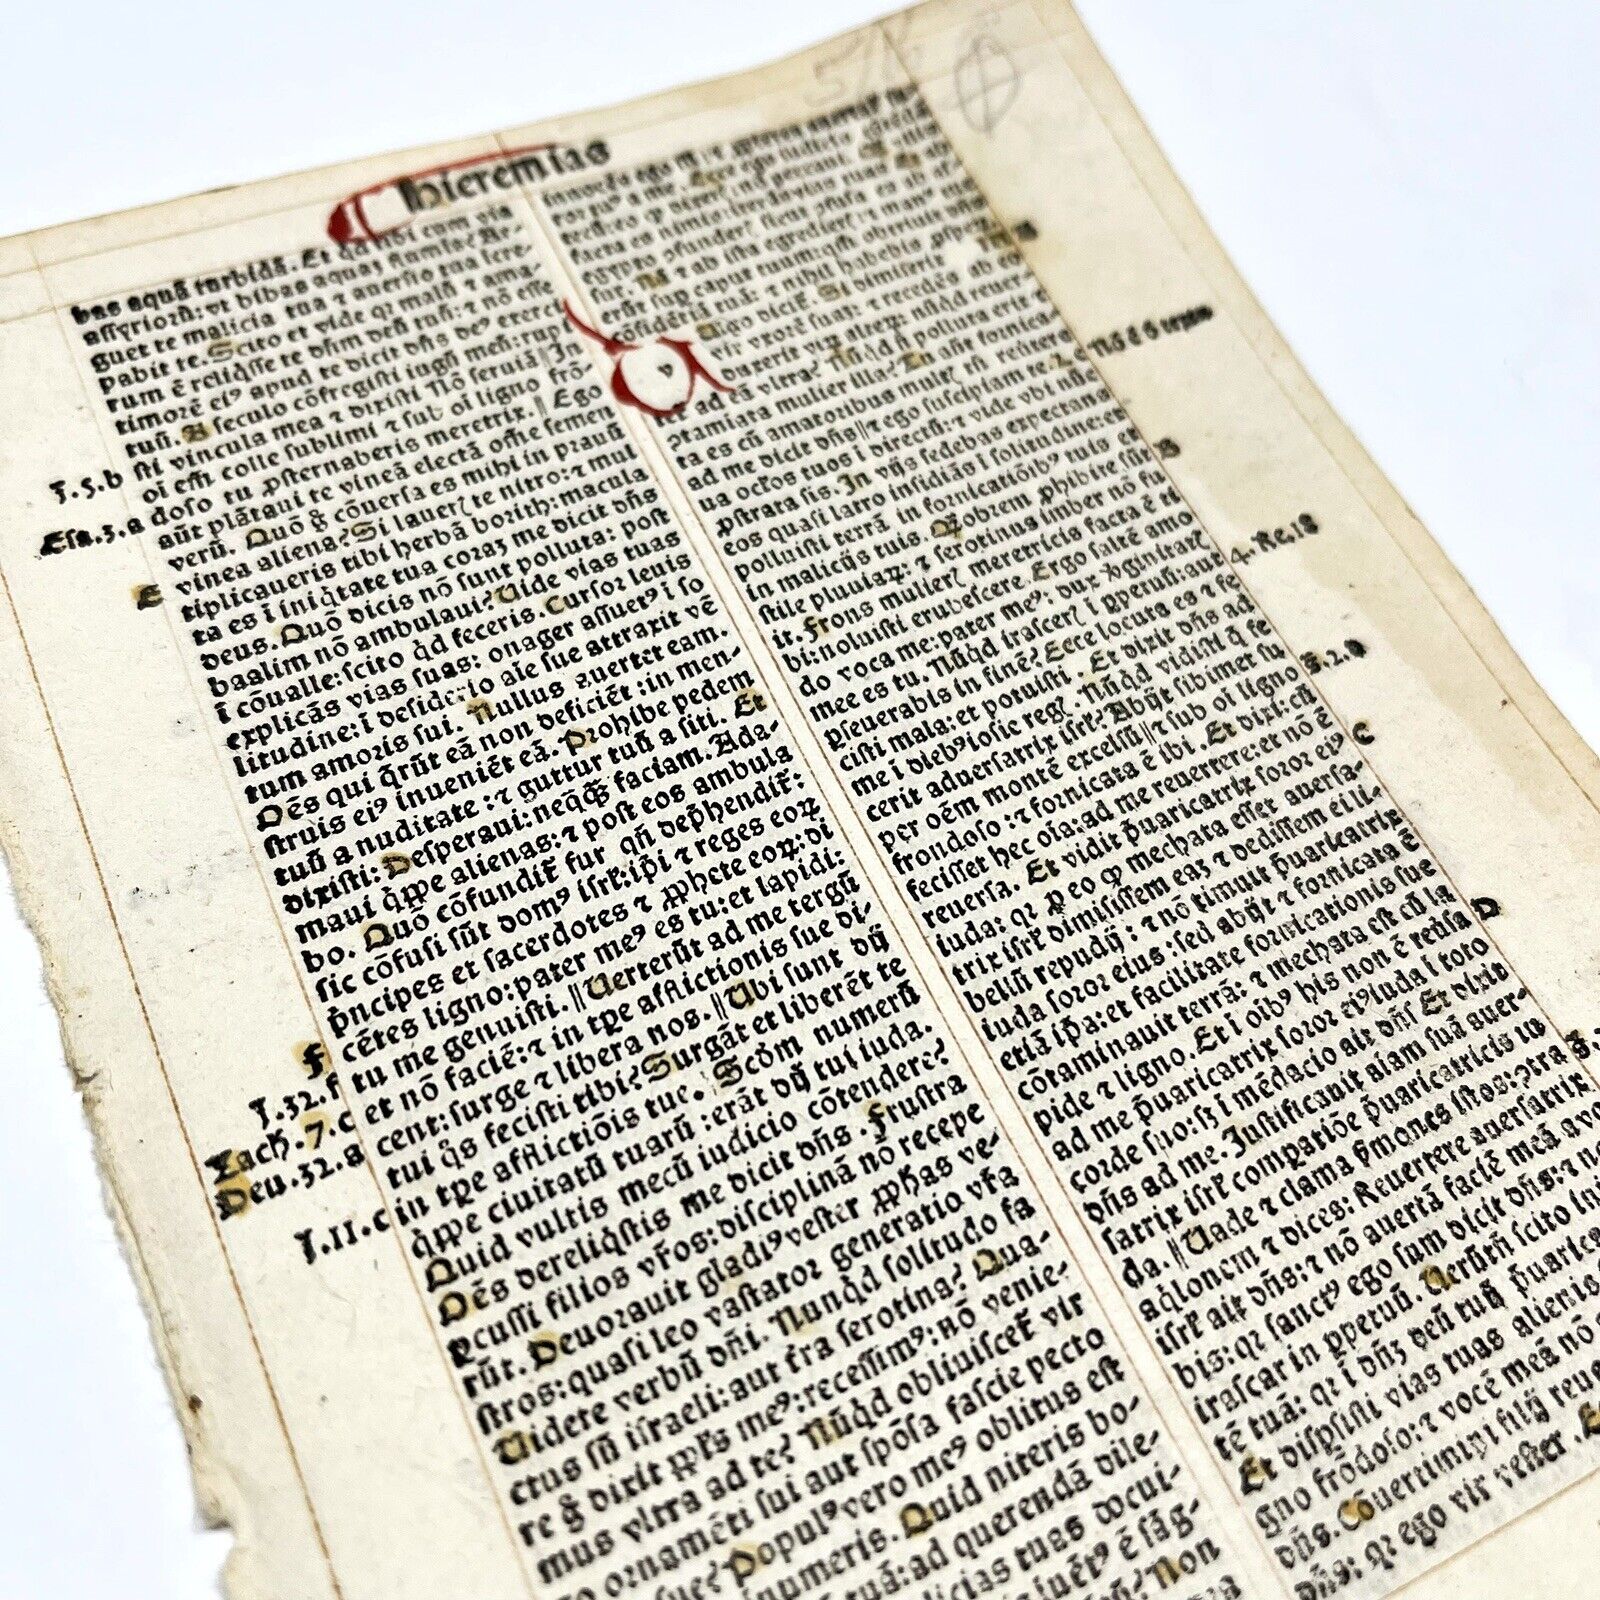 Hieremias
bas aquã turbidã. Et qd tibi cum via
assyrioꝝ: vt bibas aquaȝ fluminis? Ar-
guet te malicia tua ⁊ auersio tua icre-
pabit te. Scito et vide qꝛ malũ ⁊ ama-
rum ẽ reliqsse te dñm deũ tuũ: ⁊ nõ esse
timorẽ eiꝰ apud te dicit dñs deꝰ exerci
tuũ. A seculo cõfregisti iugũ meũ: rupi
sti vincula mea ⁊ dixisti Nõ seruiã || In
oi em̃ colle sublimi ⁊ sub oi ligno frõ-
J.5.b
doso tu ꝓsternaberis meretrix. || Ego
Esa.5.a
aũt plãtaui te vineã electã oẽm semen
verũ. Quõ g̃ cõuersa es mihi in prauũ
vinea aliena? Si laueꝭ te nitro: ⁊ mul
E
tiplicaueris tibi herbã borith: macula
ta es ĩ iniqtate tua coraȝ me dicit dñs
deus. Quõ dicis nõ sunt polluta: post
baalim nõ ambulaui? Uide vias tuas
ĩ cõualle: scito qd feceris. Cursor leuis
explicãs vias suas: onager assuetꝰ ĩ so
litudine: ĩ desiderio aĩe sue attraxit vẽ
tum amoris sui. Nullus auertet eam.
Oẽs qui qrũt eã non deficiẽt: in men-
struis eiꝰ inueniẽt eã. Prohibe pedem
tuũ a nuditate: ⁊ guttur tuũ a siti. Et
dixisti: Desperaui: neqq̃ faciam. Ada-
maui qꝑpe alienas: ⁊ post eos ambula
bo. Quõ cõfundit̃ fur qñ dep̃hendit̃:
sic cõfusi sũt domꝰ isrl̃: ip̃i ⁊ reges eoꝝ
p̃ncipes et sacerdotes ⁊ ꝓphete eoꝝ: di
cẽtes ligno: pater meꝰ es tu: et lapidi:
F
tu me genuisti. || Uerterũt ad me tergũ
J.32.f
et nõ faciẽ: ⁊ in tꝑe afflictionis sue di-
Zach.7.c
cent: surge ⁊ libera nos. || Ubi sunt dij
Deu.32.a
tui q̃s fecisti tibi? Surgãt et liberẽt te
in tꝑe afflictiõis tue. Scdm numerũ
J.11.c
qꝑpe ciuitatũ tuarũ: erãt dij tui iuda.
Quid vultis mecũ iudicio cõtendere?
Oẽs dereliqstis me dicit dñs. Frustra
ꝑcussi filios vr̃os: disciplinã nõ recepe
rũt. Deuorauit gladiꝰ vester ꝓphas ve-
stros: quasi leo vastator generatio vr̃a
Uidete verbũ dñi. Nunqd solitudo fa
ctus sũ israeli: aut tr̃a serotina? Qua-
re g̃ dixit ꝓpl̃s meꝰ: recessimꝰ: nõ venie-
mus vltra ad te? Nũqd obliuiscet̃ vir
go ornamẽti sui aut spõsa fascie pecto
sue? Populꝰ vero meꝰ oblitus est
inumeris. Quid niteris bo-
tuã: ad querendã dile-
licias tuas docui-
ẽ sãg-
Non
innocẽs ego sũ:
a me. Ecce ego iudicio
tecũ: eo ꝙ dixeꝭ: nõ peccaui.
facta es nimis: iterãs vias tuas
egypto ꝯfunderꝭ: sicut ꝯfusa es ab as
sur. Nã ⁊ ab ista egredierꝭ: ⁊ manꝰ tue
erũt suꝑ caput tuum: qm̃ obtriuit dñs
cõfidẽtiã tuã: ⁊ nihil habebis ꝓsꝑe
v
Ulgo dicit̃. Si dimiserit
vir vxorẽ suaȝ: ⁊ recedẽs ab eo
duxerit viꝝ alterꝝ: nũqd reuer
Nõ ẽ 6 texus
tet ad eã vltra? Nũqd nõ polluta erit ⁊
ꝯtamiata mulier illa? Tu aũt fornica
ta es cũ amatoribus multꝭ: tñ reũtere
ad me dicit dñs || ⁊ ego suscipiam te. Le
ua ocl̃os tuos ĩ directũ: ⁊ vide vbi nũc
ꝓstrata sis. In vijs sedebas expectans
eos quasi latro insidiãs ĩ solitudine: et
B
polluisti terrã in fornicatiõibꝰ tuis et
in malicijs tuis. Qõbrem ꝓhibite sũt
stille pluuiaꝝ: ⁊ serotinus imber nõ fu
it. Frons mulierꝭ meretricis facta ẽ ti
bi: noluisti erubescere. Ergo saltẽ amo
4.Re.18
do voca me: pater meꝰ: dux v̾ginitatꝭ
mee es tu. Nũqd irascerꝭ ĩ ꝑpetuũ: aut
ꝑseuerabis in finẽ? Ecce locuta es ⁊ fe
cisti mala: et potuisti. Et dixit dñs ad
J.2.d
me ĩ diebꝰ iosie regꝭ. Nũqd vidisti q̃ fe
cerit aduersatrix isrl̃? Abijt sibimet su
per oẽm montẽ excelsũ || ⁊ sub oi ligno
frondoso: ⁊ fornicata ẽ ibi. Et dixi: cũ
C
fecisset hec oĩa: ad me reuertere: et nõ ẽ
reuersa. Et vidit p̃uaricatrix soror eiꝰ
iuda: qꝛ ꝑ eo ꝙ mechata esset auersa-
trix isrl̃ dimisissem eaȝ ⁊ dedissem ei li-
bellũ repudij: ⁊ nõ timuit p̃uaricatrix
iuda soror eius: sed abijt ⁊ fornicata ẽ
etiã ip̃a: et facilitate fornicationis sue
cõtaminauit terrã: ⁊ mechata est cũ la
D
pide ⁊ ligno. Et ĩ oĩbꝰ his non ẽ reũsa
ad me p̃uaricatrix soror eiꝰ iuda ĩ toto
corde suo: sȝ ĩ mẽdacio ait dñs Et dixit
dñs ad me. Justificauit aĩam suã auer-
satrix isrl̃ compatiõe p̃uaricatricis iu
da. || Uade ⁊ clama s̃mones istos: ꝯtra
aqlonem ⁊ dices: Reuertere auersatrix
isrl̃ ait dñs: ⁊ nõ auertã faciẽ meã a vo
bis: qꝛ sanctꝰ ego sum dicit dñs: ⁊ nõ
irascar in ꝑpetuũ. Uerũtñ scito ini
tẽ tuã: qꝛ ĩ dñȝ deũ tuũ p̃uarica
Et disꝑsisti vias tuas alienis
gno frõdoso: ⁊ vocẽ meã nõ
dñs. Cõuertimini filij reue
dñs: qꝛ ego vir vester. Et